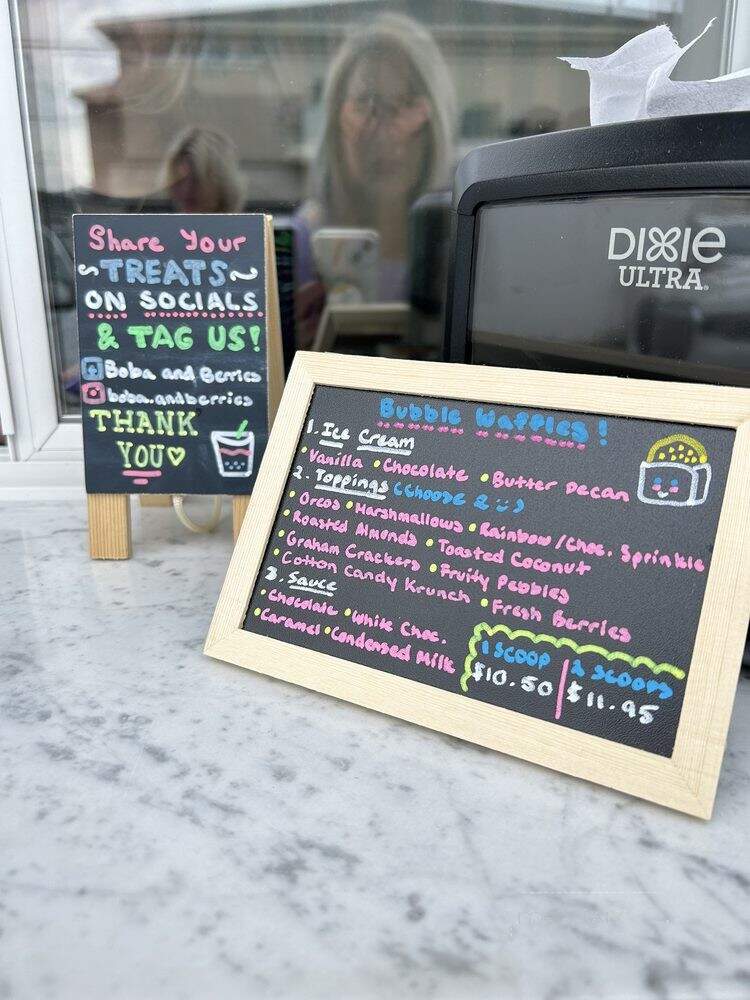 Share Your
~TREATS~
ON SOCIALS
& TAG US!
Boba and Berries
boba.andberries
THANK
YOU♡
DIXIE
ULTRA®
Bubble Waffles!
1. Ice Cream
•Vanilla •Chocolate •Butter Pecan
2. Toppings (choose 2 :))
•Oreos •Marshmallows •Rainbow/Choc. Sprinkle
•Roasted Almonds •Toasted Coconut
•Graham Crackers •Fruity Pebbles
•Cotton Candy Krunch •Fresh Berries
3. Sauce
•Chocolate •White Choc.
•Caramel •Condensed Milk
1 SCOOP | 2 SCOOPS
$10.50 | $11.95